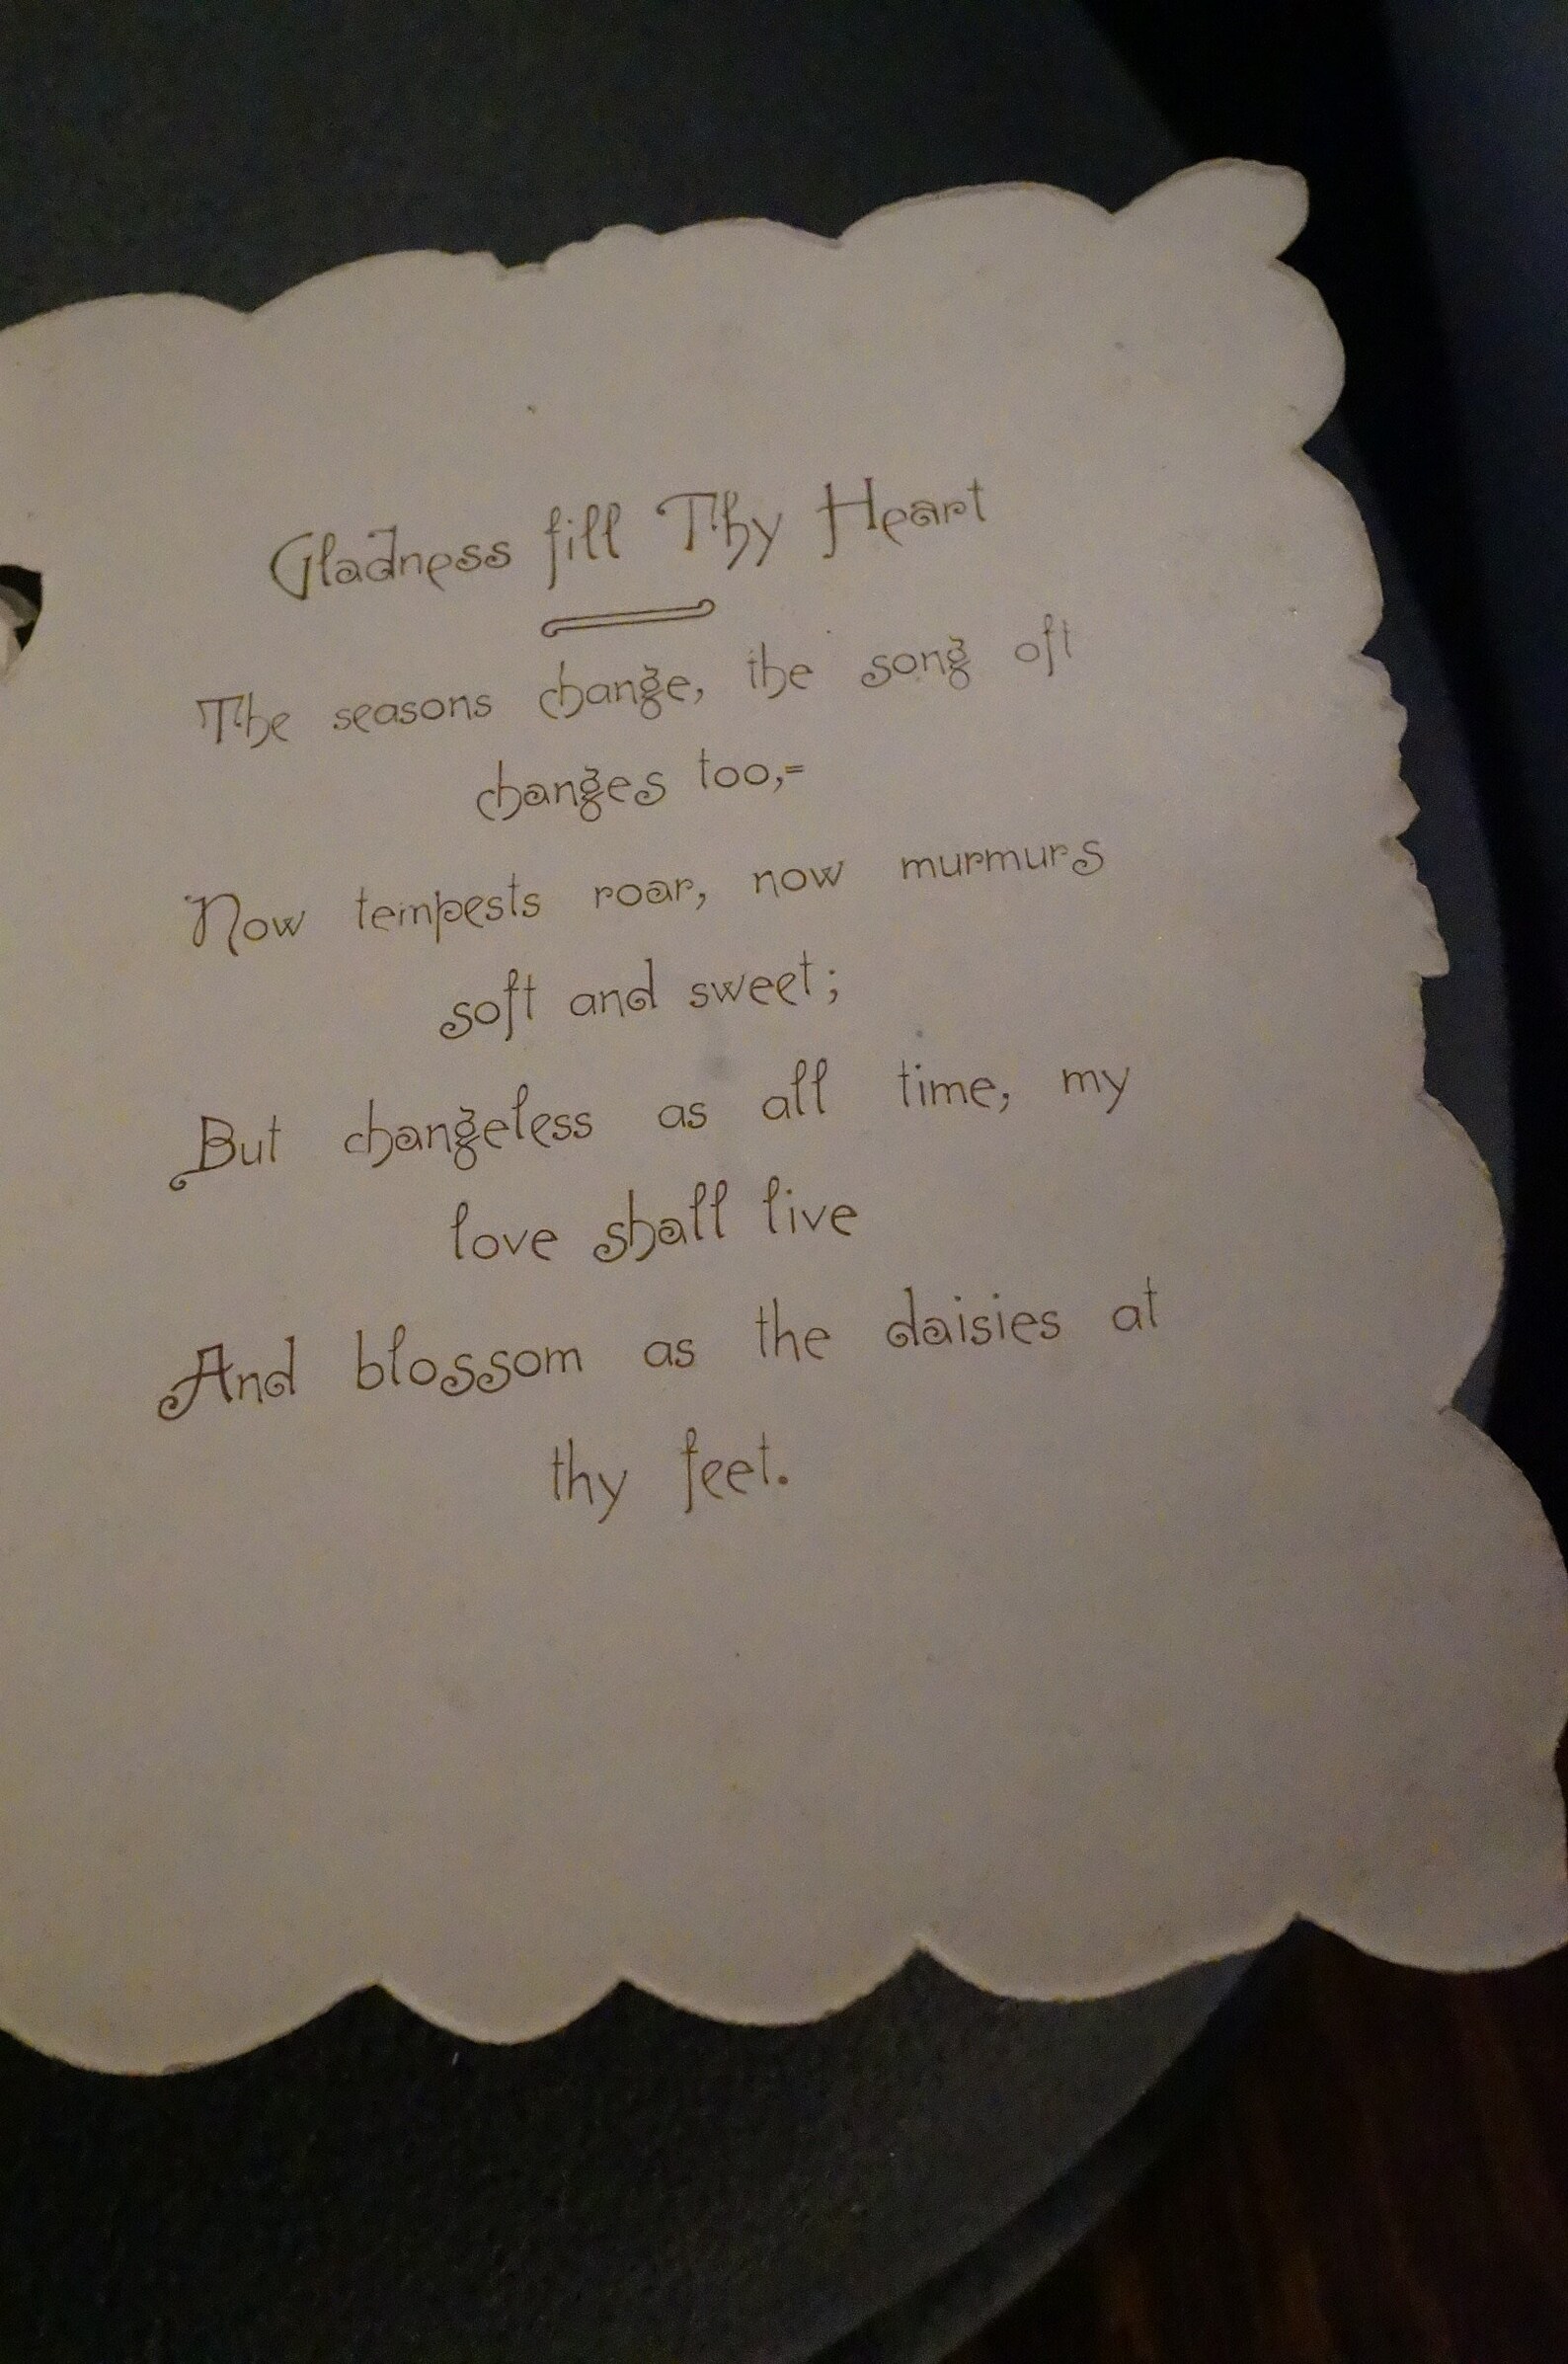 Gladness fill Thy Heart
The seasons change, the song oft
changes too,=
Now tempests roar, now murmurs
soft and sweet;
But changeless as all time, my
love shall live
And blossom as the daisies at
thy feet.